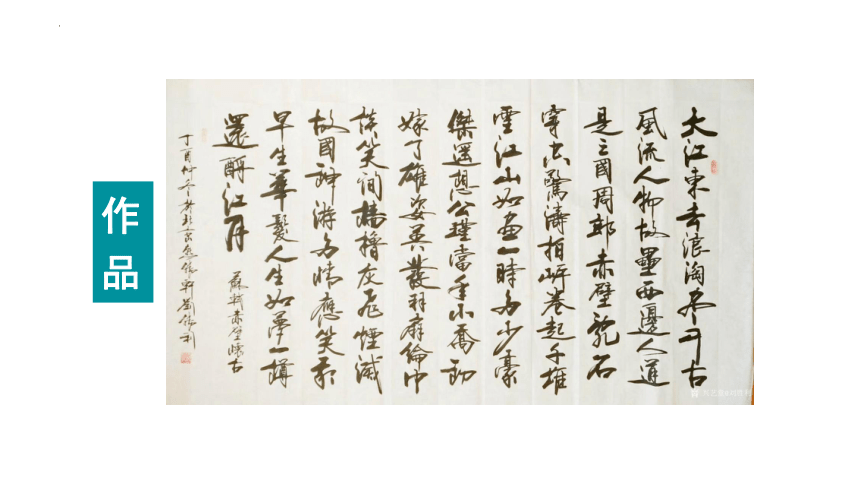 作
品
大江東去浪淘尽千古
風流人物故壘西邊人道
是三國周郎赤壁乱石
穿空驚濤拍岸卷起千堆
雪江山如画一時多少豪
傑遥想公瑾當年小喬初
嫁了雄姿英發羽扇綸巾
談笑间檣櫓灰飛煙滅
故國神游多情應笑我
早生華髮人生如夢一樽
還酹江月
蘇軾赤壁懷古
丁酉初冬